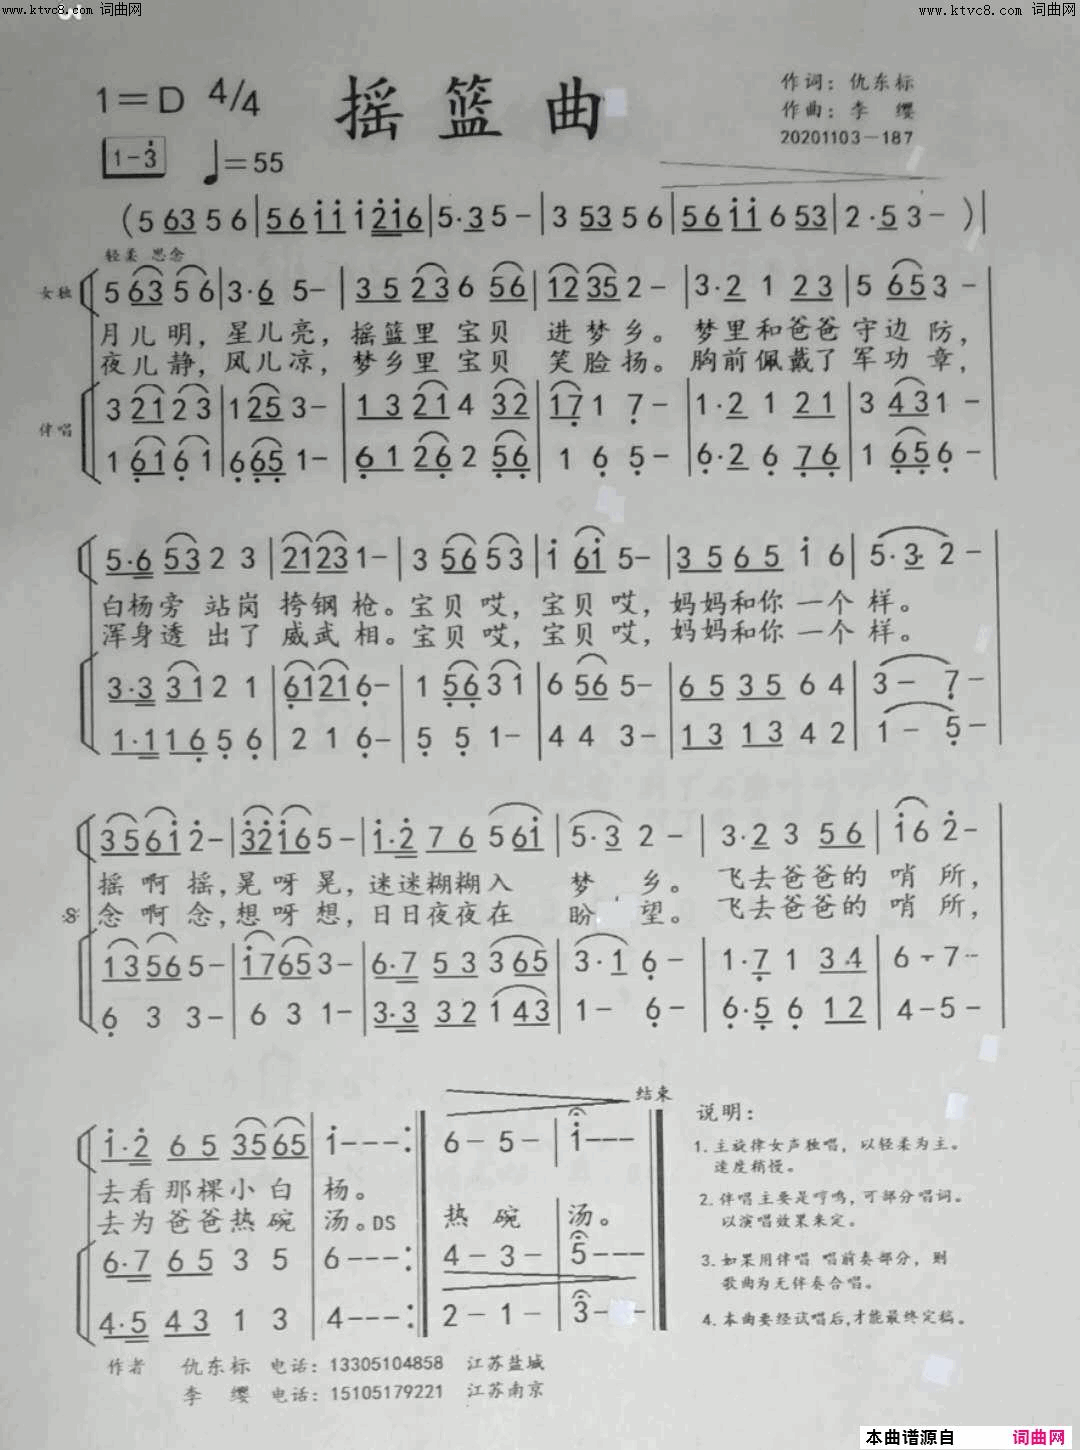 www.ktvc8.com 词曲网
www.ktvc8.com 词曲网
1=D 4/4
摇篮曲
作词：仇东标
作曲：李 缨
20201103-187
1-3 ♩=55
(5 63 5 6|56ii i2i6|5·35-|3 53 5 6|56ii 6 53|2·53-)|
轻柔 思念
女独 5 63 5 6|3·6 5-|35 23 6 56|12 35 2-|3·2 1 23|5 653-
月儿明，星儿亮，摇篮里 宝贝 进梦乡。梦里和爸爸守边防，
夜儿静，风儿凉，梦乡里 宝贝 笑脸扬。胸前佩戴了 军功章，
伴唱 3 21 2 3|1 25 3-|13 21 4 32|17 1 7-|1·2 1 21|3 431-
1 61 6 1|6 65 1-|61 26 2 56|1 6 5-|6·2 6 76|1 656-
5·6 53 2 3|21 23 1-|3 56 53|i 6i 5-|35 65 i 6|5·3·2-
白杨旁 站岗 挎钢枪。宝贝哎，宝贝哎，妈妈和你一个样。
浑身透出了威武相。宝贝哎，宝贝哎，妈妈和你一个样。
3·3 31 2 1|61 21 6-|1 56 31|6 56 5-|65 35 6 4|3-7-
1·1 16 5 6|2 1 6-|5 5 1-|4 4 3-|13 13 4 2|1-5-
35 6i 2-|32 i6 5-|i·2 76 56i|5·3 2-|3·2 3 56|i6 2-
摇啊摇，晃呀晃，迷迷糊糊入 梦 乡。飞去爸爸的哨所，
念啊念，想呀想，日日夜夜在 盼 望。飞去爸爸的哨所，
13 56 5-|i7 65 3-|6·7 53 365|3·1 6-|1·7 1 3.4|6-7-
6 3 3-|6 3 1-|3·3 32 143|1-6-|6·5 6 12|4-5-
结束
i·2 65 35 65|i---:|6-5-|i---
去看那棵小白 杨。
去为爸爸热碗 汤。DS 热碗 汤。
6·7 65 3 5|6---:|4-3-|5---
4·5 43 1 3|4---:|2-1-|3---
说明：
1.主旋律女声独唱，以轻柔为主。
速度稍慢。
2.伴唱主要是哼鸣，可部分唱词。
以演唱效果来定。
3.如果用伴唱 唱前奏部分，则
歌曲为无伴奏合唱。
4.本曲要经试唱后，才能最终定稿。
作者 仇东标 电话：13305104858 江苏盐城
李 缨 电话：15105179221 江苏南京
本曲谱源自 词曲网